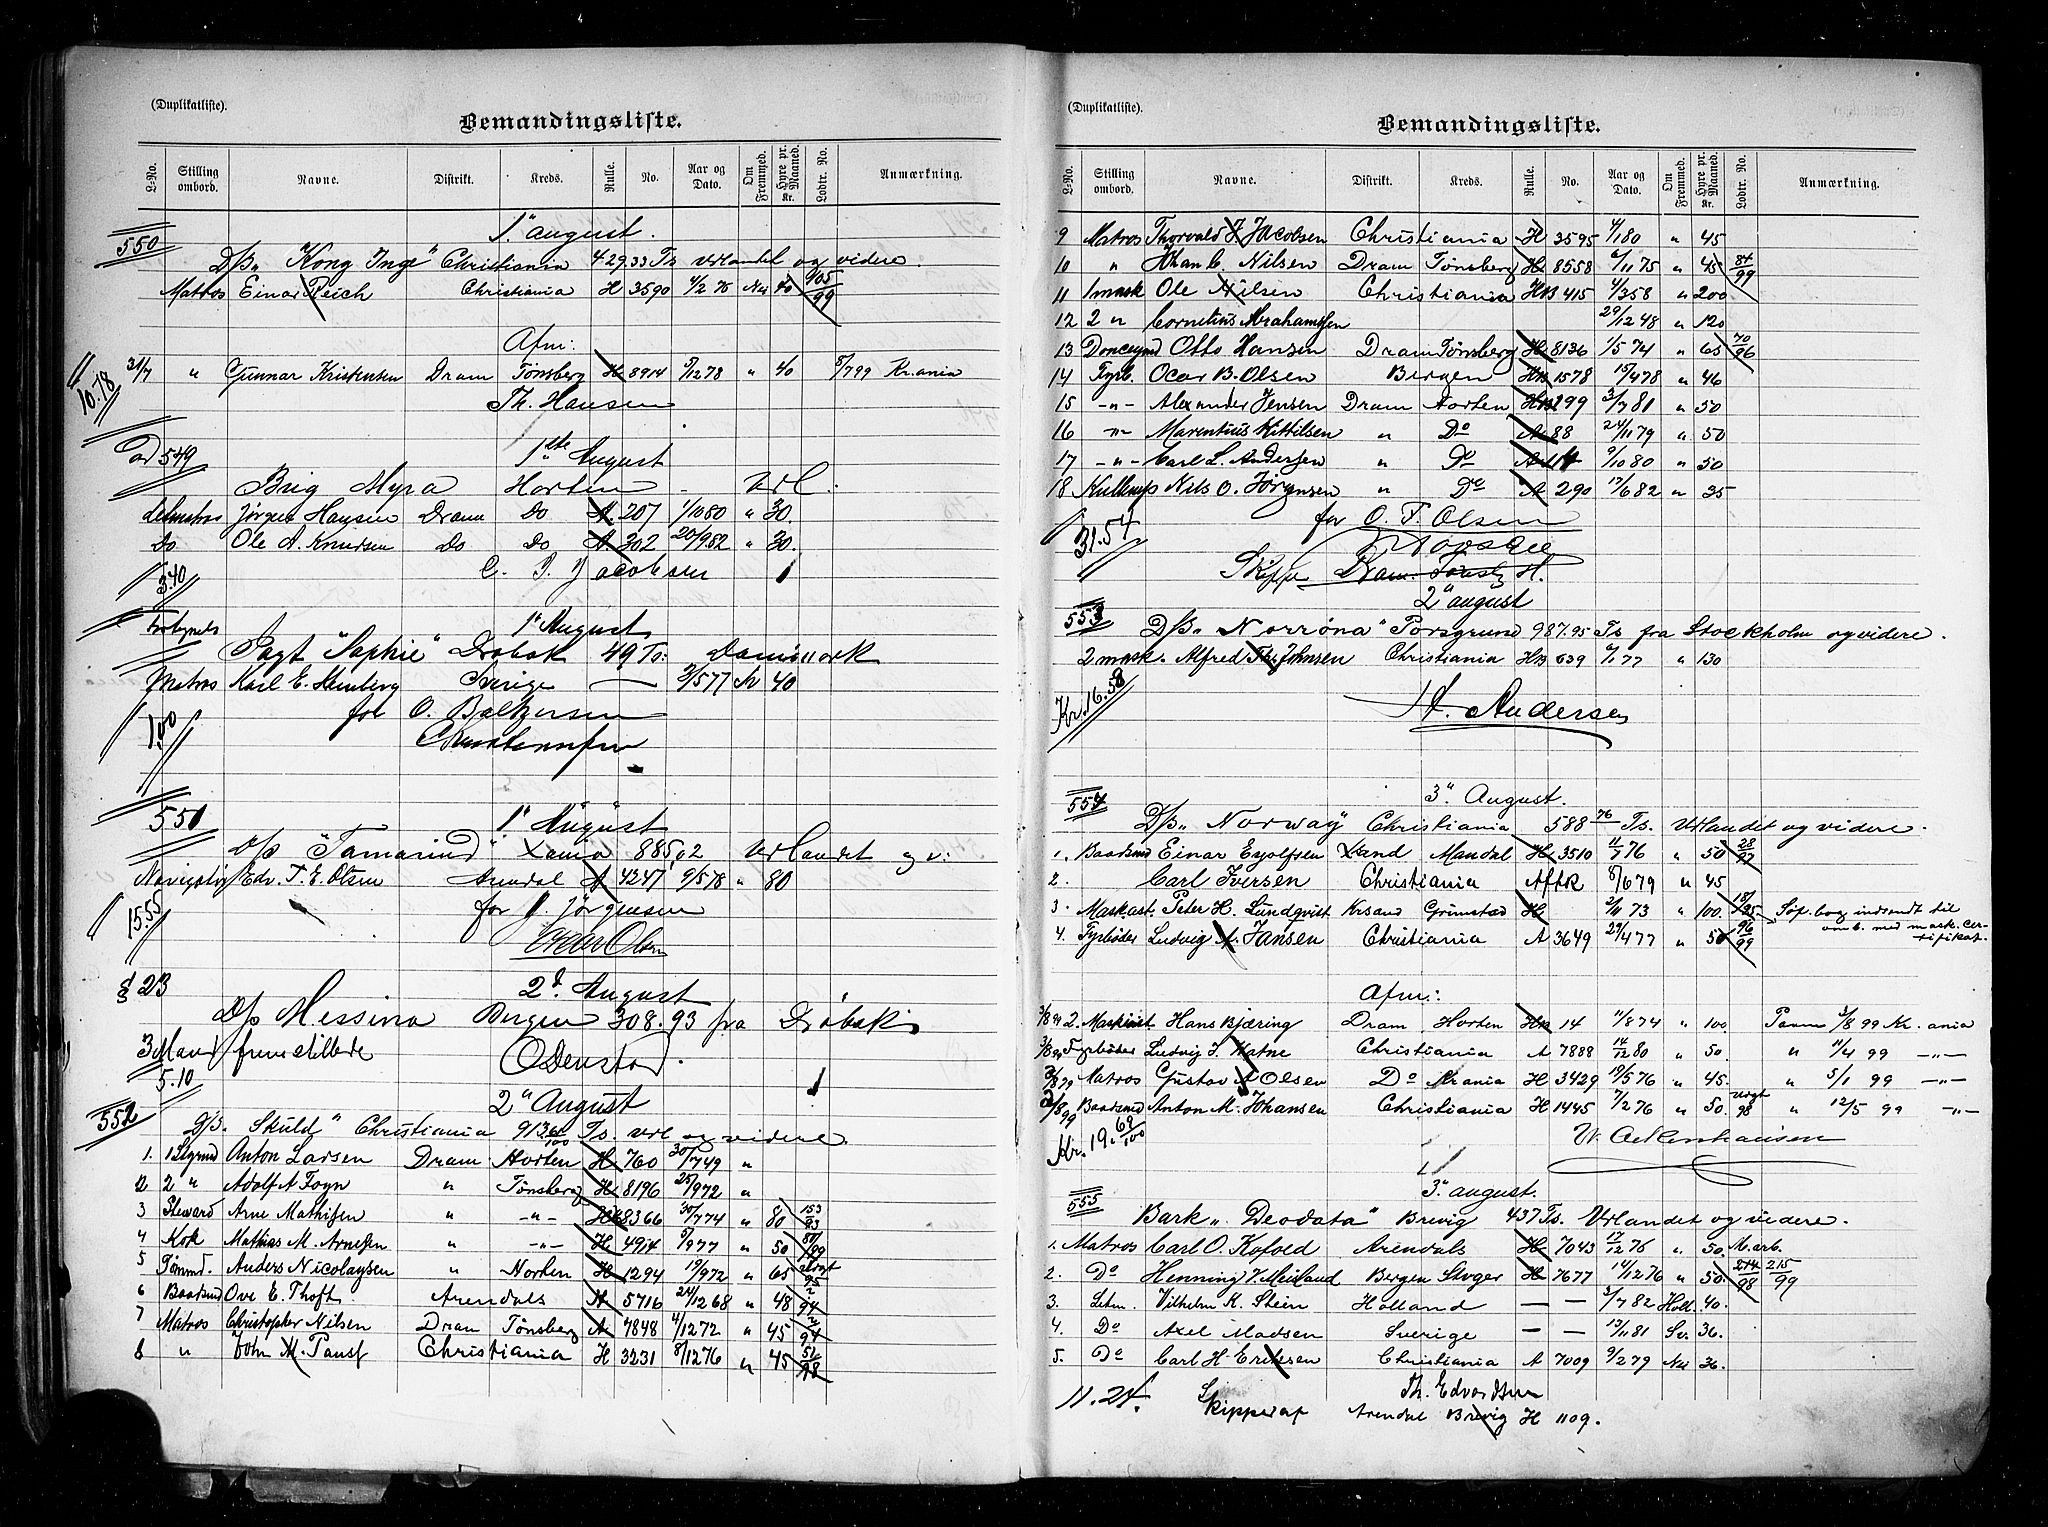 (Duplikatliste).
Bemandingsliste.
L-No. Stilling ombord. Navne. Distrikt. Kreds. Rulle. No. Aar og Dato. Om Fremmed. Hyre pr. Maaned. Kr. Lodtr. No. Anmærkning.
1" august.
550
D/s „Kong Inge" Christiania 429.33 Ts Udlandet og videre.
Matros Einar Reich Christiania H 3590 4/2 75 Nei 40 405/99
Afm:
31/7 " Gunnar Kristensen Dram Tönsberg H 8914 5/1278 " 40 8/799 Kr.ania
10.78
Th. Hansen
ad 549
1ste August
Brig Myra Horten Udl.
Letmatros Jörgen Hansen Dram Do A 207 1/1080 " 30.
Do Ole A. Knudsen Do Do A 302 20/982 " 30.
C. J. Jacobsen
3.40
1" August
Jagt "Sophie" Dröbak 49 Ts: Danmark
Matros Karl E. Heinberg Sverige — 2/577 40
for O. Baltzersen
1.00
551
1" August
D/s "Tamarind" Xania 885.02 Udlandet og v:
Edv. T. E. Olsen Arendal A 4247 9/578 " 80
for J. Jörgensen
15.55
§ 23
2d. August
D/s Messina Bergen 308.93 fra Dröbak
3 Mand fremstillede
5.10
2" August
552
D/s. „Skuld" Christiania 913 Ts. Udl og videre
1. 1 Styrmd Anton Larsen Dram Horten H 760 30/749 "
2 2 " Adolf A Foyn " Tönsberg H 8196 25/972 "
3 Steward Arne Mathisen " -"- H 8366 30/774 " 80 153/93
4 Kok Mathias M. Arnesen " -"- H 4914 5/977 " 50 80/99
5 Tömmd. Anders Nicolaysen " Horten H 1294 19/972 " 65
6 Baadsmd Ove E. Thoft. Arendals A 5716 24/1268 " 48 2/94
7 Matros Christopher Nilsen Dram Tönsberg A 4848 4/1272 " 45
8 " John M. Paust Christiania H 3231 8/1276 " 45 51/98
(Duplikatliste).
Bemandingsliste.
L-No. Stilling ombord. Navne. Distrikt. Kreds. Rulle. No. Aar og Dato. Om Fremmed. Hyre pr. Maaned. Kr. Lodtr. No. Anmærkning.
9 Matros Thorvald J. Jacobsen Christiania H 3595 4/180 " 45
10 " Johan C. Nilsen Dram Tönsberg H 8558 6/1175 " 45 84/99
11 1 mask Ole Nilsen Christiania HB 415 4/358 " 200
12 2 " Cornelius Abrahamsen 29/1248 " 120
13 Otto Hansen Dram Tönsberg H 8136 1/574 " 65 70/96
14 Fyrb. Oscar B. Olsen Bergen HB 1578 15/478 " 46
15 -"- Alexander Jensen Dram Horten HB 299 3/781 " 50
16 -"- Marentius Kittilsen " Do A 88 24/1179 " 50
17 -"- Carl L. Andersen " Do A 114 9/1080 " 50
18 Nils O. Jörgensen " Do A 290 17/682 " 35
for O. T. Olsen
31.54
Skipp. Dram. Tönsbg H.
2" august
553
D/s. „Norröna" Porsgrund 987.95 Ts fra Stockholm og videre.
2 mask. Alfred Johnsen Christiania HB 639 6/177 " 130
Kr. 16.58
A. Andersen
554
3" August.
D/s. „Norway" Christiania 588 76 Ts. Udlandet og videre.
1. Baadsmd Einar Eyolfsen Xsand Mandal H 3510 11/776 " 50 28/97
2. Carl Iversen Christiania Aftk 8/679 " 45
3. Maskast. Peter H. Lundqvist Krsand Grimstad H 2/1173 " 100. 18/95 Söf. bog indsendt til omb. med mask. Certifikat.
4. Fyrböder Ludvig A. Jansen Christiania A 3649 29/477 " 50 96/99
Afm:.
3/8 99 2. Maskinist Hans Bjæring Dram Horten HB 14 11/874 " 100 Paam 3/8 99 Kr.ania
3/8 99 Fyrböder Ludvig J. Christiania A 7888 14/12 80 " 50. " 11/4 99 -"-
3/8 99 Matros Gustav A Olsen Do Krania H 3429 19/576 " 45. " 5/1 99 -"-
2/8 99 Baadsmd Anton M. Johansen Christiania H 1445 7/276 " 50. 98 " 12/5 99 -"-
Kr. 19.69/100
W. Ackenhausen
3" august.
555
Bark „Deodata" Brevig 437 Ts. Udlandet og videre.
1. Matros Carl O. Kofoed Arendals H 7043 17/12 76 " 50.
2. Do Henning J. Meiland Bergen H 7677 14/1276 " 50. 214/98 215/99
3. Letm. Vilhelm K. Stein Holland — — 3/782 Holl. 40.
4. Do Axel Madsen Sverige — — 13/1181 Sv. 36.
5. Do Carl H. Eriksen Christiania A 7009 9/279 Nei 36.
11.24.
Th. Edvardsen
Skipper af Arendal Brevig H 1109.